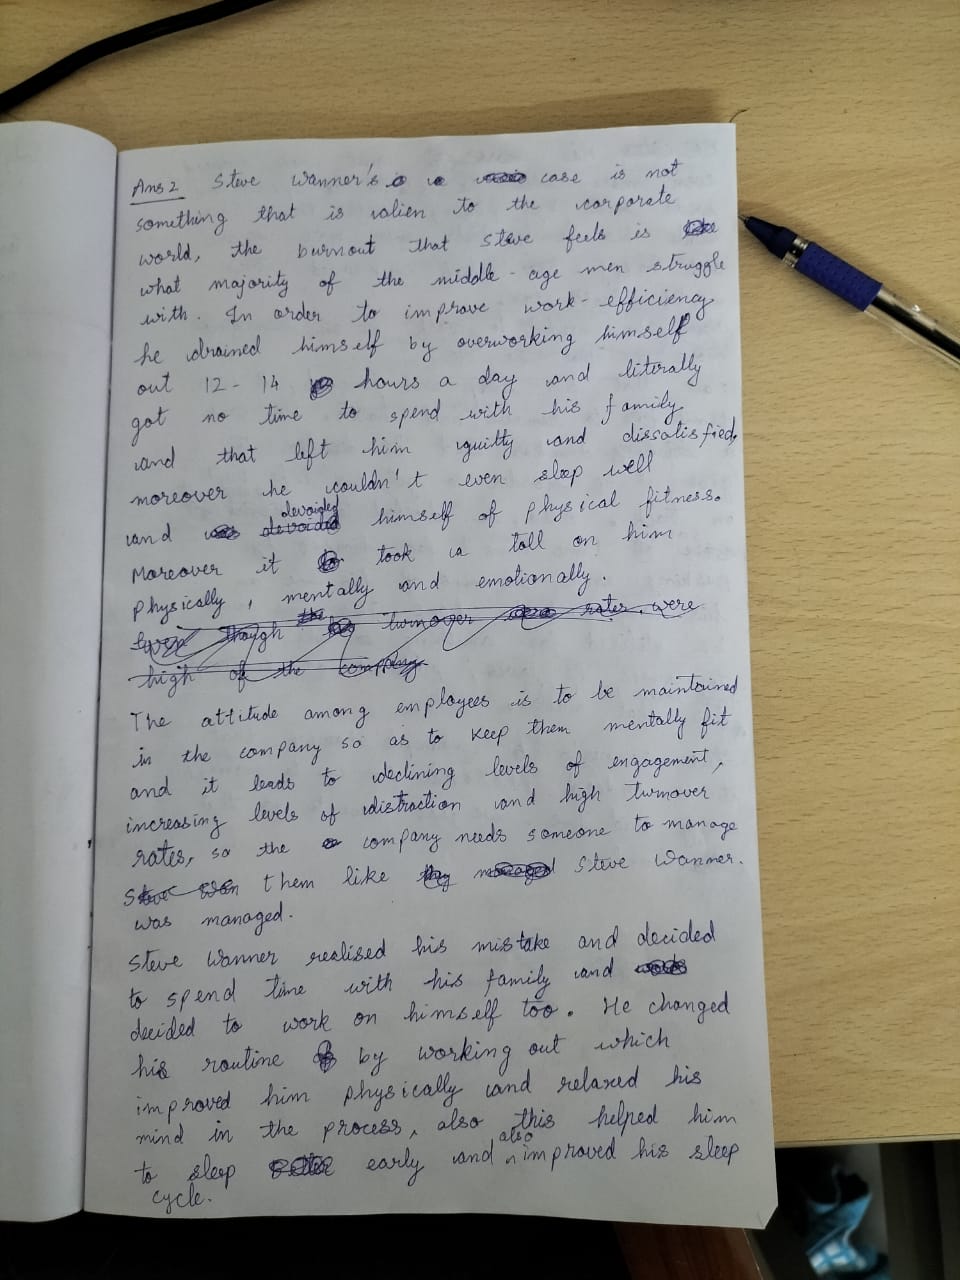 Ans 2 Steve Wanner's case is not
something that is alien to the corporate
world, the burnout that Steve feels is
what majority of the middle-age men struggle
with. In order to improve work-efficiency
he drained himself by overworking himself
out 12-14 hours a day and literally
got no time to spend with his family
and that left him guilty and dissatisfied,
moreover he couldn't even sleep well
and devoided himself of physical fitness.
Moreover it took a toll on him
physically, mentally and emotionally.
Even though the turnover rates, were
high of the company
The attitude among employees is to be maintained
in the company so as to keep them mentally fit
and it leads to declining levels of engagement,
increasing levels of distraction and high turnover
rates, so the company needs someone to manage
them like Steve Wanner.
was managed.
Steve Wanner realised his mistake and decided
to spend time with his family and
decided to work on himself too. He changed
his routine by working out which
improved him physically and relaxed his
mind in the process, also this helped him
to sleep early and also improved his sleep
cycle.